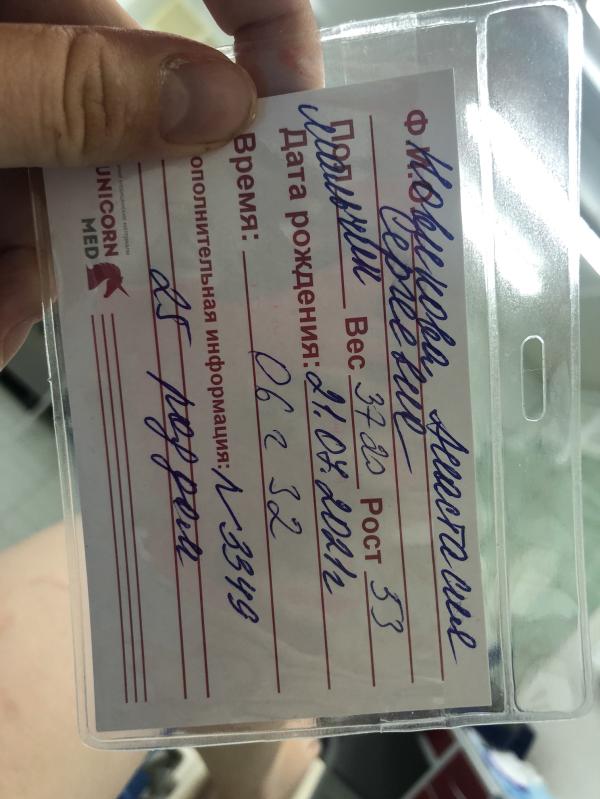 Ф.И.О. Новикова Анастасия
Сергеевна
Пол Мальчик Вес 3720 Рост 53
Дата рождения: 21.07.2021г
Время: 06 ч 32
ополнительная информация: N 3349
25 роддом
UNICORN
MED